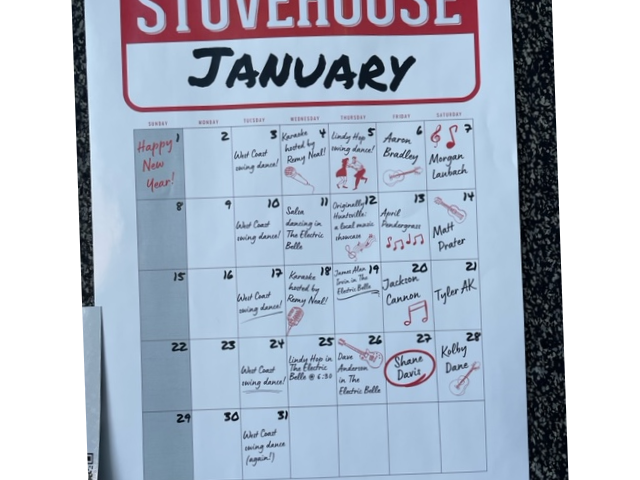 STOVEHOUSE
JANUARY
SUNDAY MONDAY TUESDAY WEDNESDAY THURSDAY FRIDAY SATURDAY
1
Happy
New
Year!
2
3
West Coast
swing dance!
4
Karaoke
hosted by
Remy Neal!
5
Lindy Hop
swing dance!
6
Aaron
Bradley
7
Morgan
Laubach
8
9
10
West Coast
swing dance!
11
Salsa
dancing in
The Electric
Belle
12
Originally
Huntsville:
a local music
showcase
13
April
Pendergrass
14
Matt
Prater
15
16
17
West Coast
swing dance!
18
Karaoke
hosted by
Remy Neal!
19
James Alan
Irvin in The
Electric Belle
20
Jackson
Cannon
21
Tyler AK
22
23
24
West Coast
swing dance!
25
Lindy Hop in
The Electric
Belle @ 6:30
26
Dave
Anderson
in The
Electric Belle
27
Shane
Davis
28
Kolby
Dane
29
30
31
West Coast
swing dance
(again!)